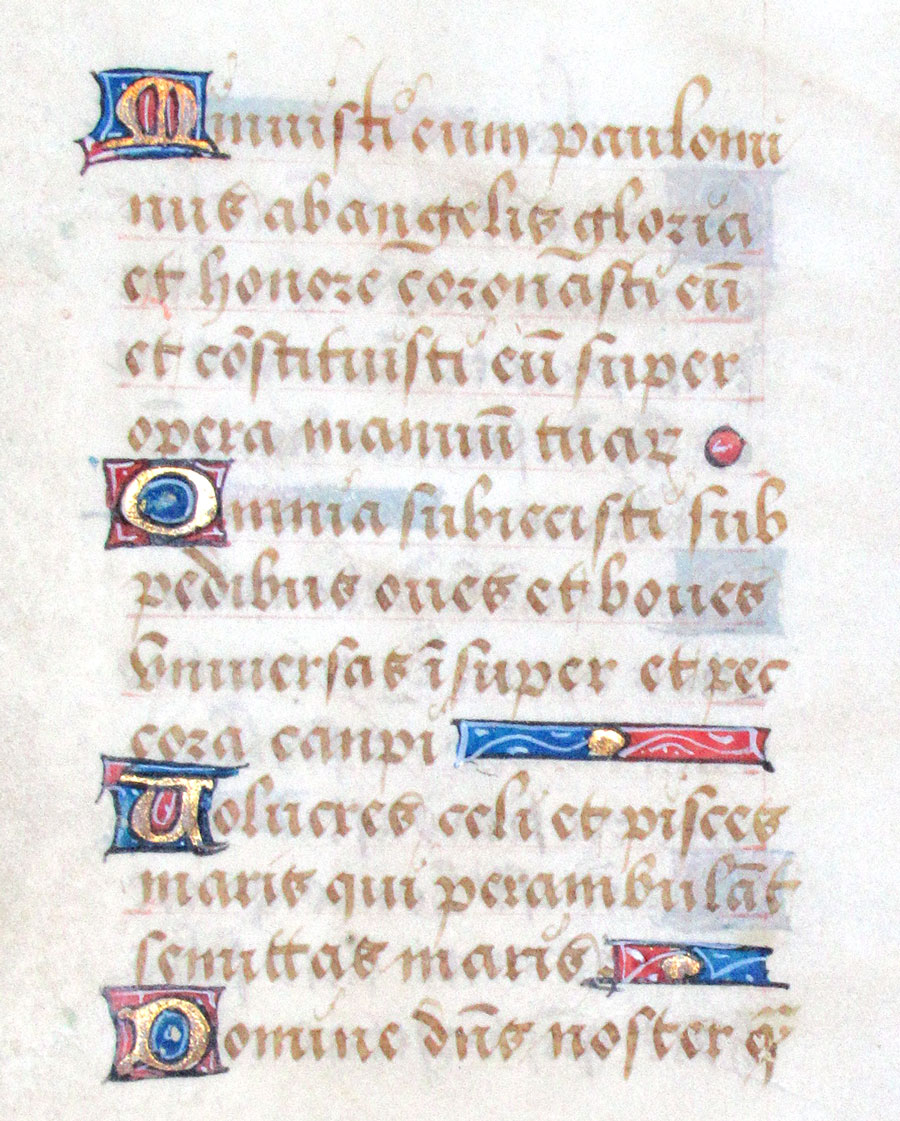 Minuisti eum paulomi
nus ab angelis gloria
et honore coronasti eū
et cōstituisti eū super
opera manuū tuaꝝ
Omnia subiecisti sub
pedibus oues et boues
vniuersas īsuper et pec
cora canpi
Uolucres celi et pisces
maris qui perambulāt
semittas maris
Domine dn̄s noster q̄